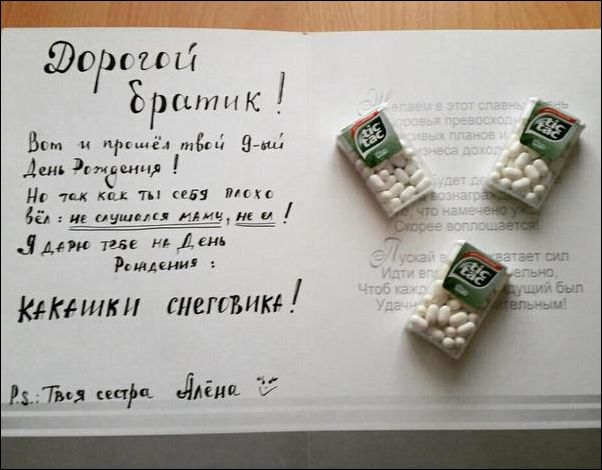 Дорогой
братик!
Вот и прошёл твой 9-ый
День Рождения!
Но так как ты себя плохо
вёл: не слушался маму, не ел!
Я дарю тебе на День
Рождения:
КАКАШКИ СНЕГОВИКА!
P.S.: Твоя сестра Алёна
Желаем в этот славный день
превосход
планов и
бизнеса
будет
вознагражд
что намечено
Скорее воплощается!
Пускай хватает сил
Идти
Чтоб кажд был
Удач
tic tac
tic tac
tic tac